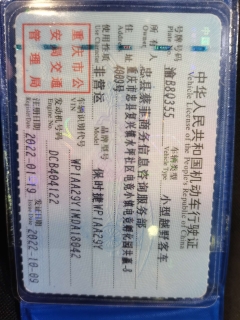 中华人民共和国机动车行驶证
Vehicle License of the People's Republic of China
号牌号码 渝B8Q355 车辆类型 小型越野客车
Plate No.
所有人 忠县
商务信息咨询服务部
住址 重庆市忠县复兴镇水坪社区电竞小镇电竞孵化园
使用性质 非营运 品牌型号 保时捷WP1AA29Y
车辆识别代号 WP1AA29Y1MDA18042
VIN
发动机号码 DCB404122
Engine No.
注册日期 2022-01-19 发证日期 2022-10-09
重庆市公
安局交通
管理局